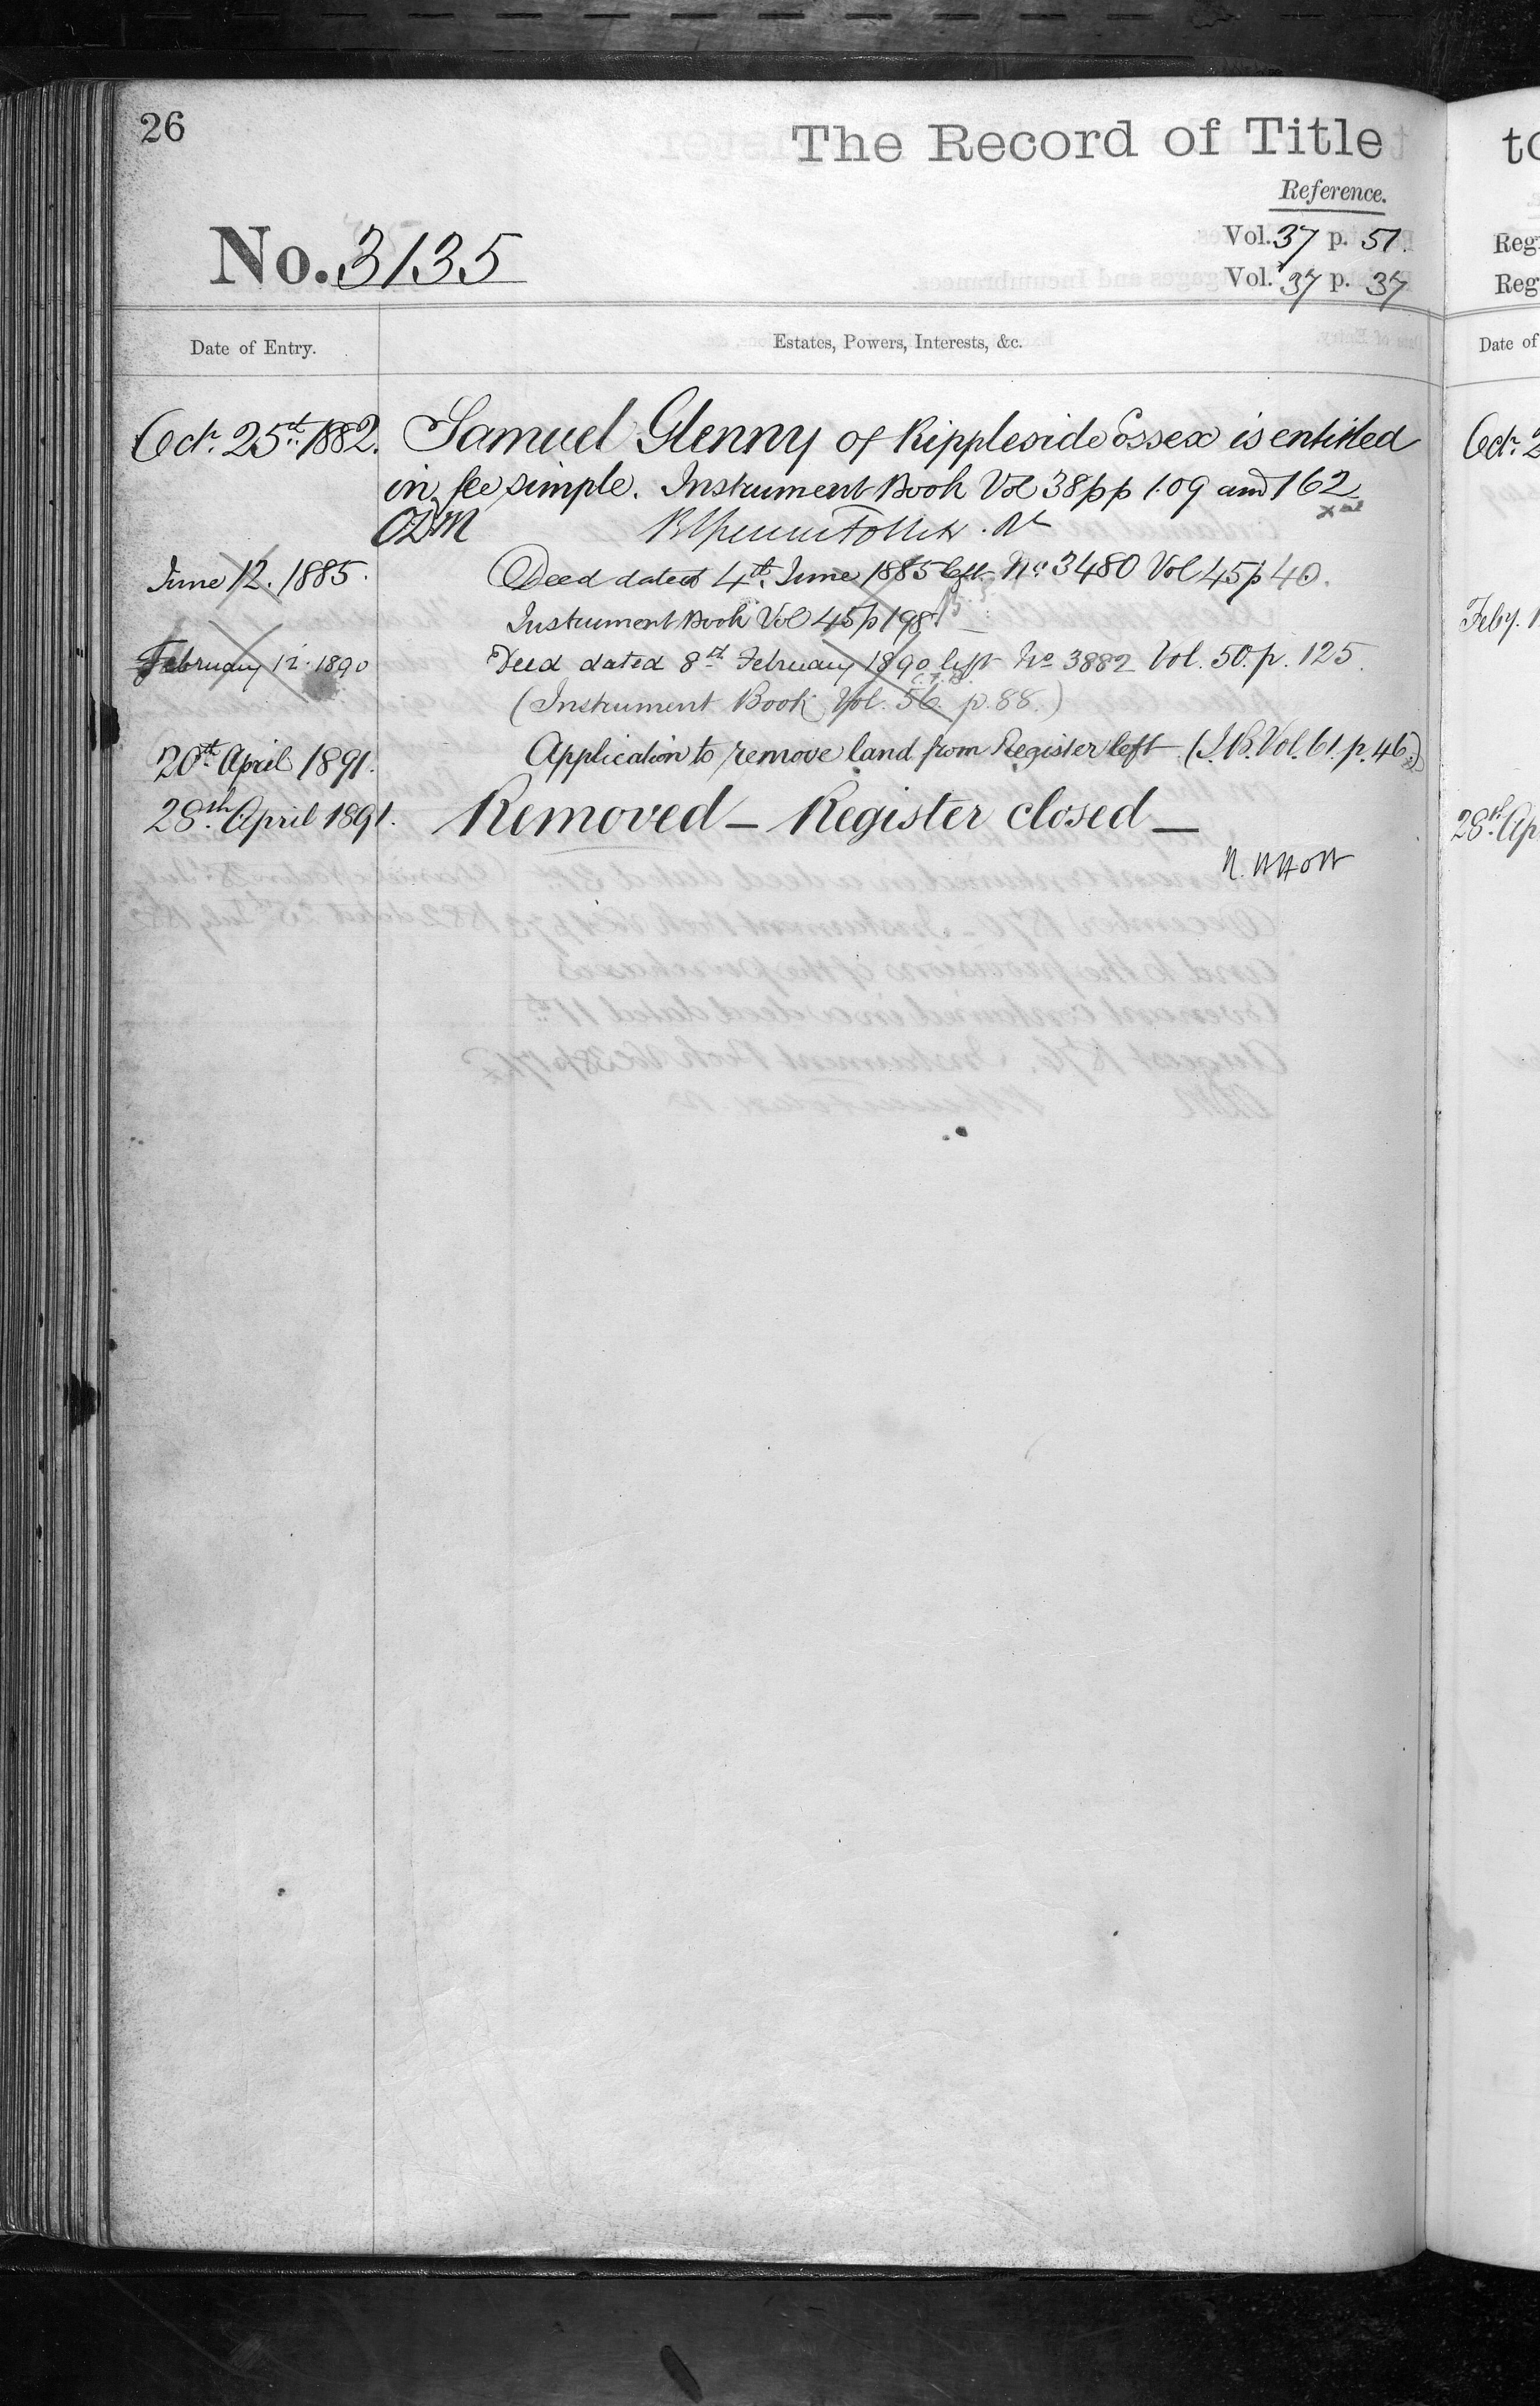 26
The Record of Title
Reference.
No. 3135
Vol. 37 p. 51.
Vol. 37 p. 37
Date of Entry.
Estates, Powers, Interests, &c.
Octr. 25th 1882.
Samuel Glenny of Rippleside Essex is entitled
in fee simple. Instrument Book Vol 38 pp 109 and 162
June 12. 1885.
Deed dated 4th June 1885 left No 3480 Vol 45 p 40.
Instrument Book Vol 45 p 198.
February 12. 1890
Deed dated 8th February 1890 left No 3882 Vol. 50. p. 125.
(Instrument Book Vol. 56. p. 88.)
20th April 1891.
Application to remove land from Register left (I.B. Vol. 61. p. 46.)
28th April 1891.
Removed – Register closed –
to
Reg
Reg
Date of
Octr. 2
Feby. 1
28th Ap